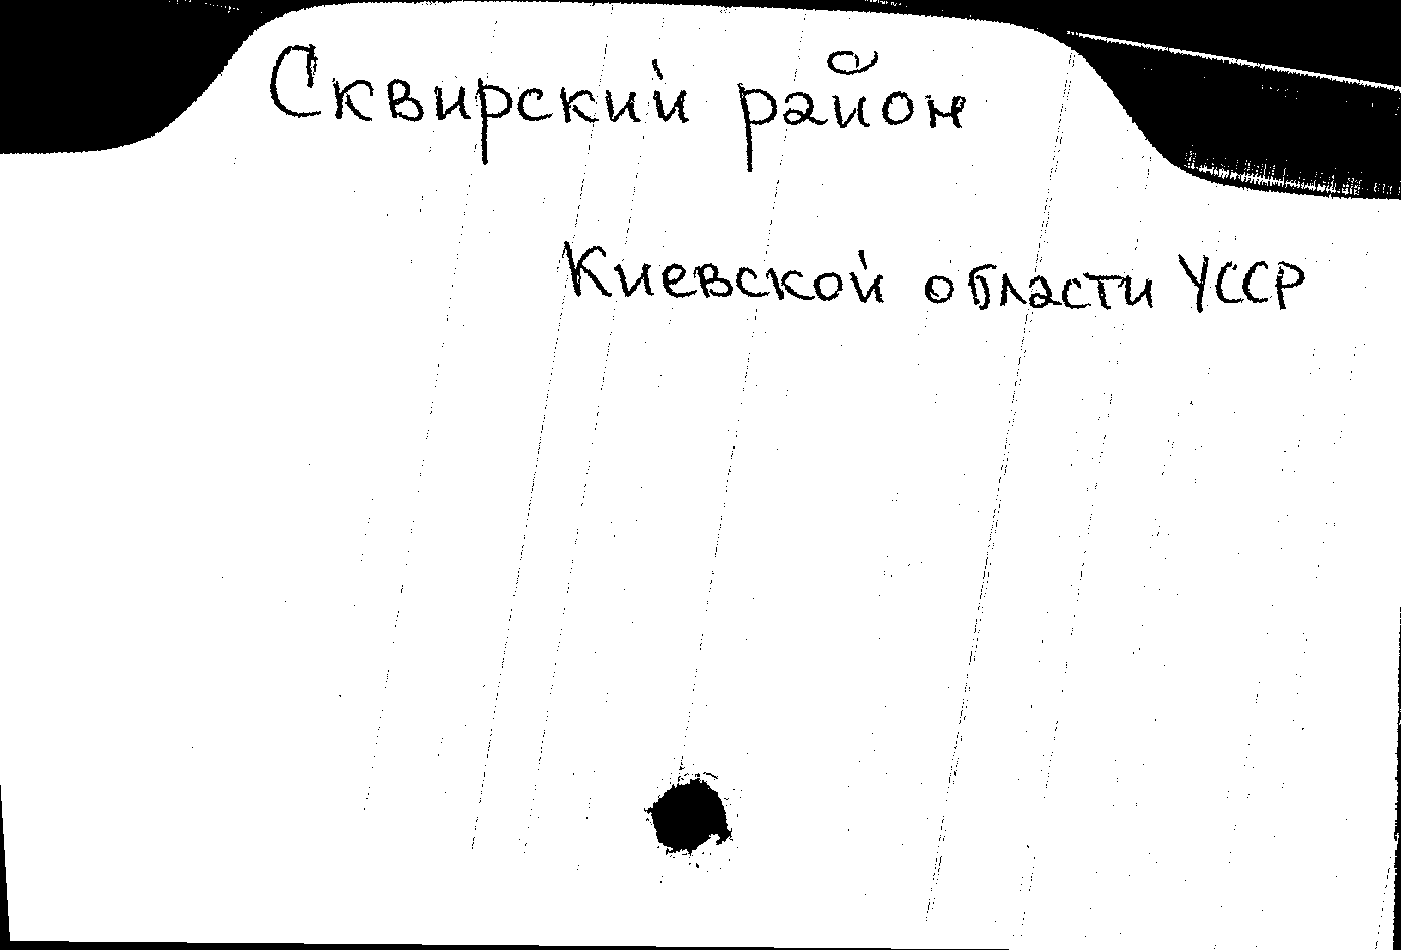 Сквирский район
Киевской области УССР